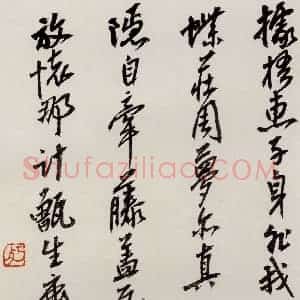 據梧惠子身非我
蝶莊周夢亦真
隱自牽藤蓋瓦
放懷那計甑生
Shufaziliao.com